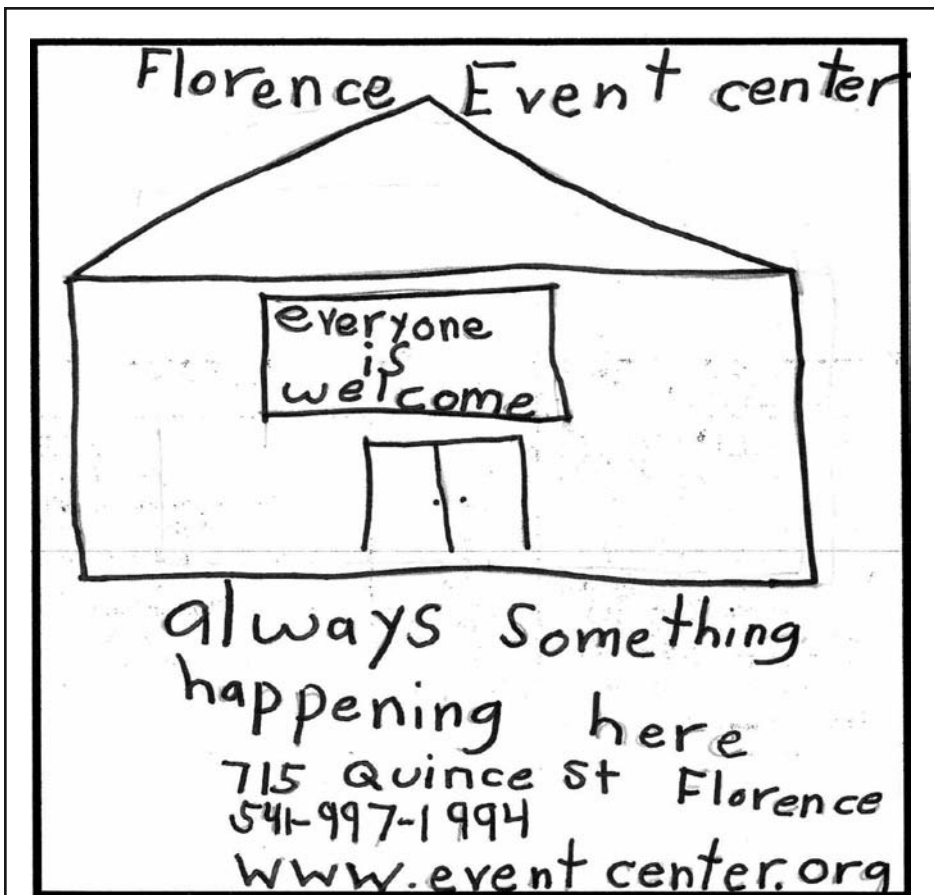 Florence Event center
everyone
is
welcome
always something
happening here
715 Quince St Florence
541-997-1994
www.eventcenter.org